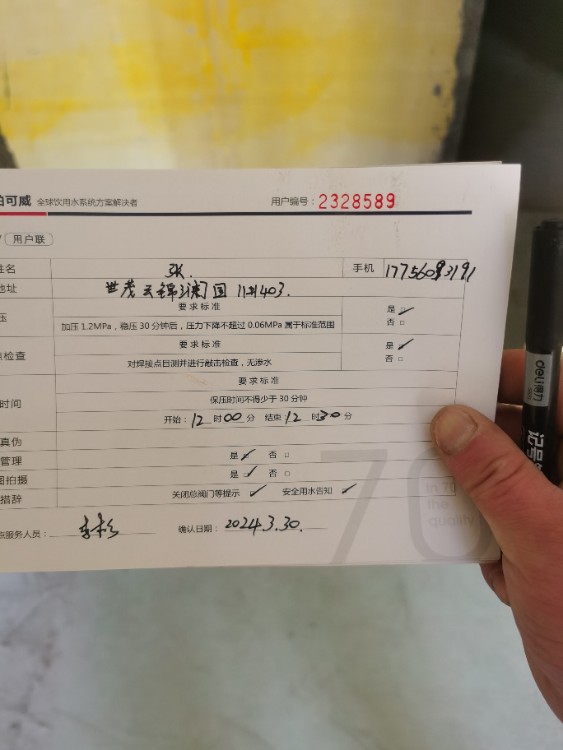 伯可威 全球饮用水系统方案解决者 用户编号：2328589
用户联
姓名 3K. 手机 17756093191
地址 世茂云锦 11#1403.
要求标准
压 加压1.2MPa，稳压30分钟后，压力下降不超过0.06MPa属于标准范围 是 否
要求标准
检查 对焊接点目测并进行敲击检查，无渗水 是 否
要求标准
时间 保压时间不得少于30分钟
开始：12时00分 结束12时30分
真伪
管理 是 否
拍摄 是 否
措辞 关闭总阀门等提示 安全用水告知
点服务人员： 确认日期：2024.3.30.
70
quality
deli得力
记号